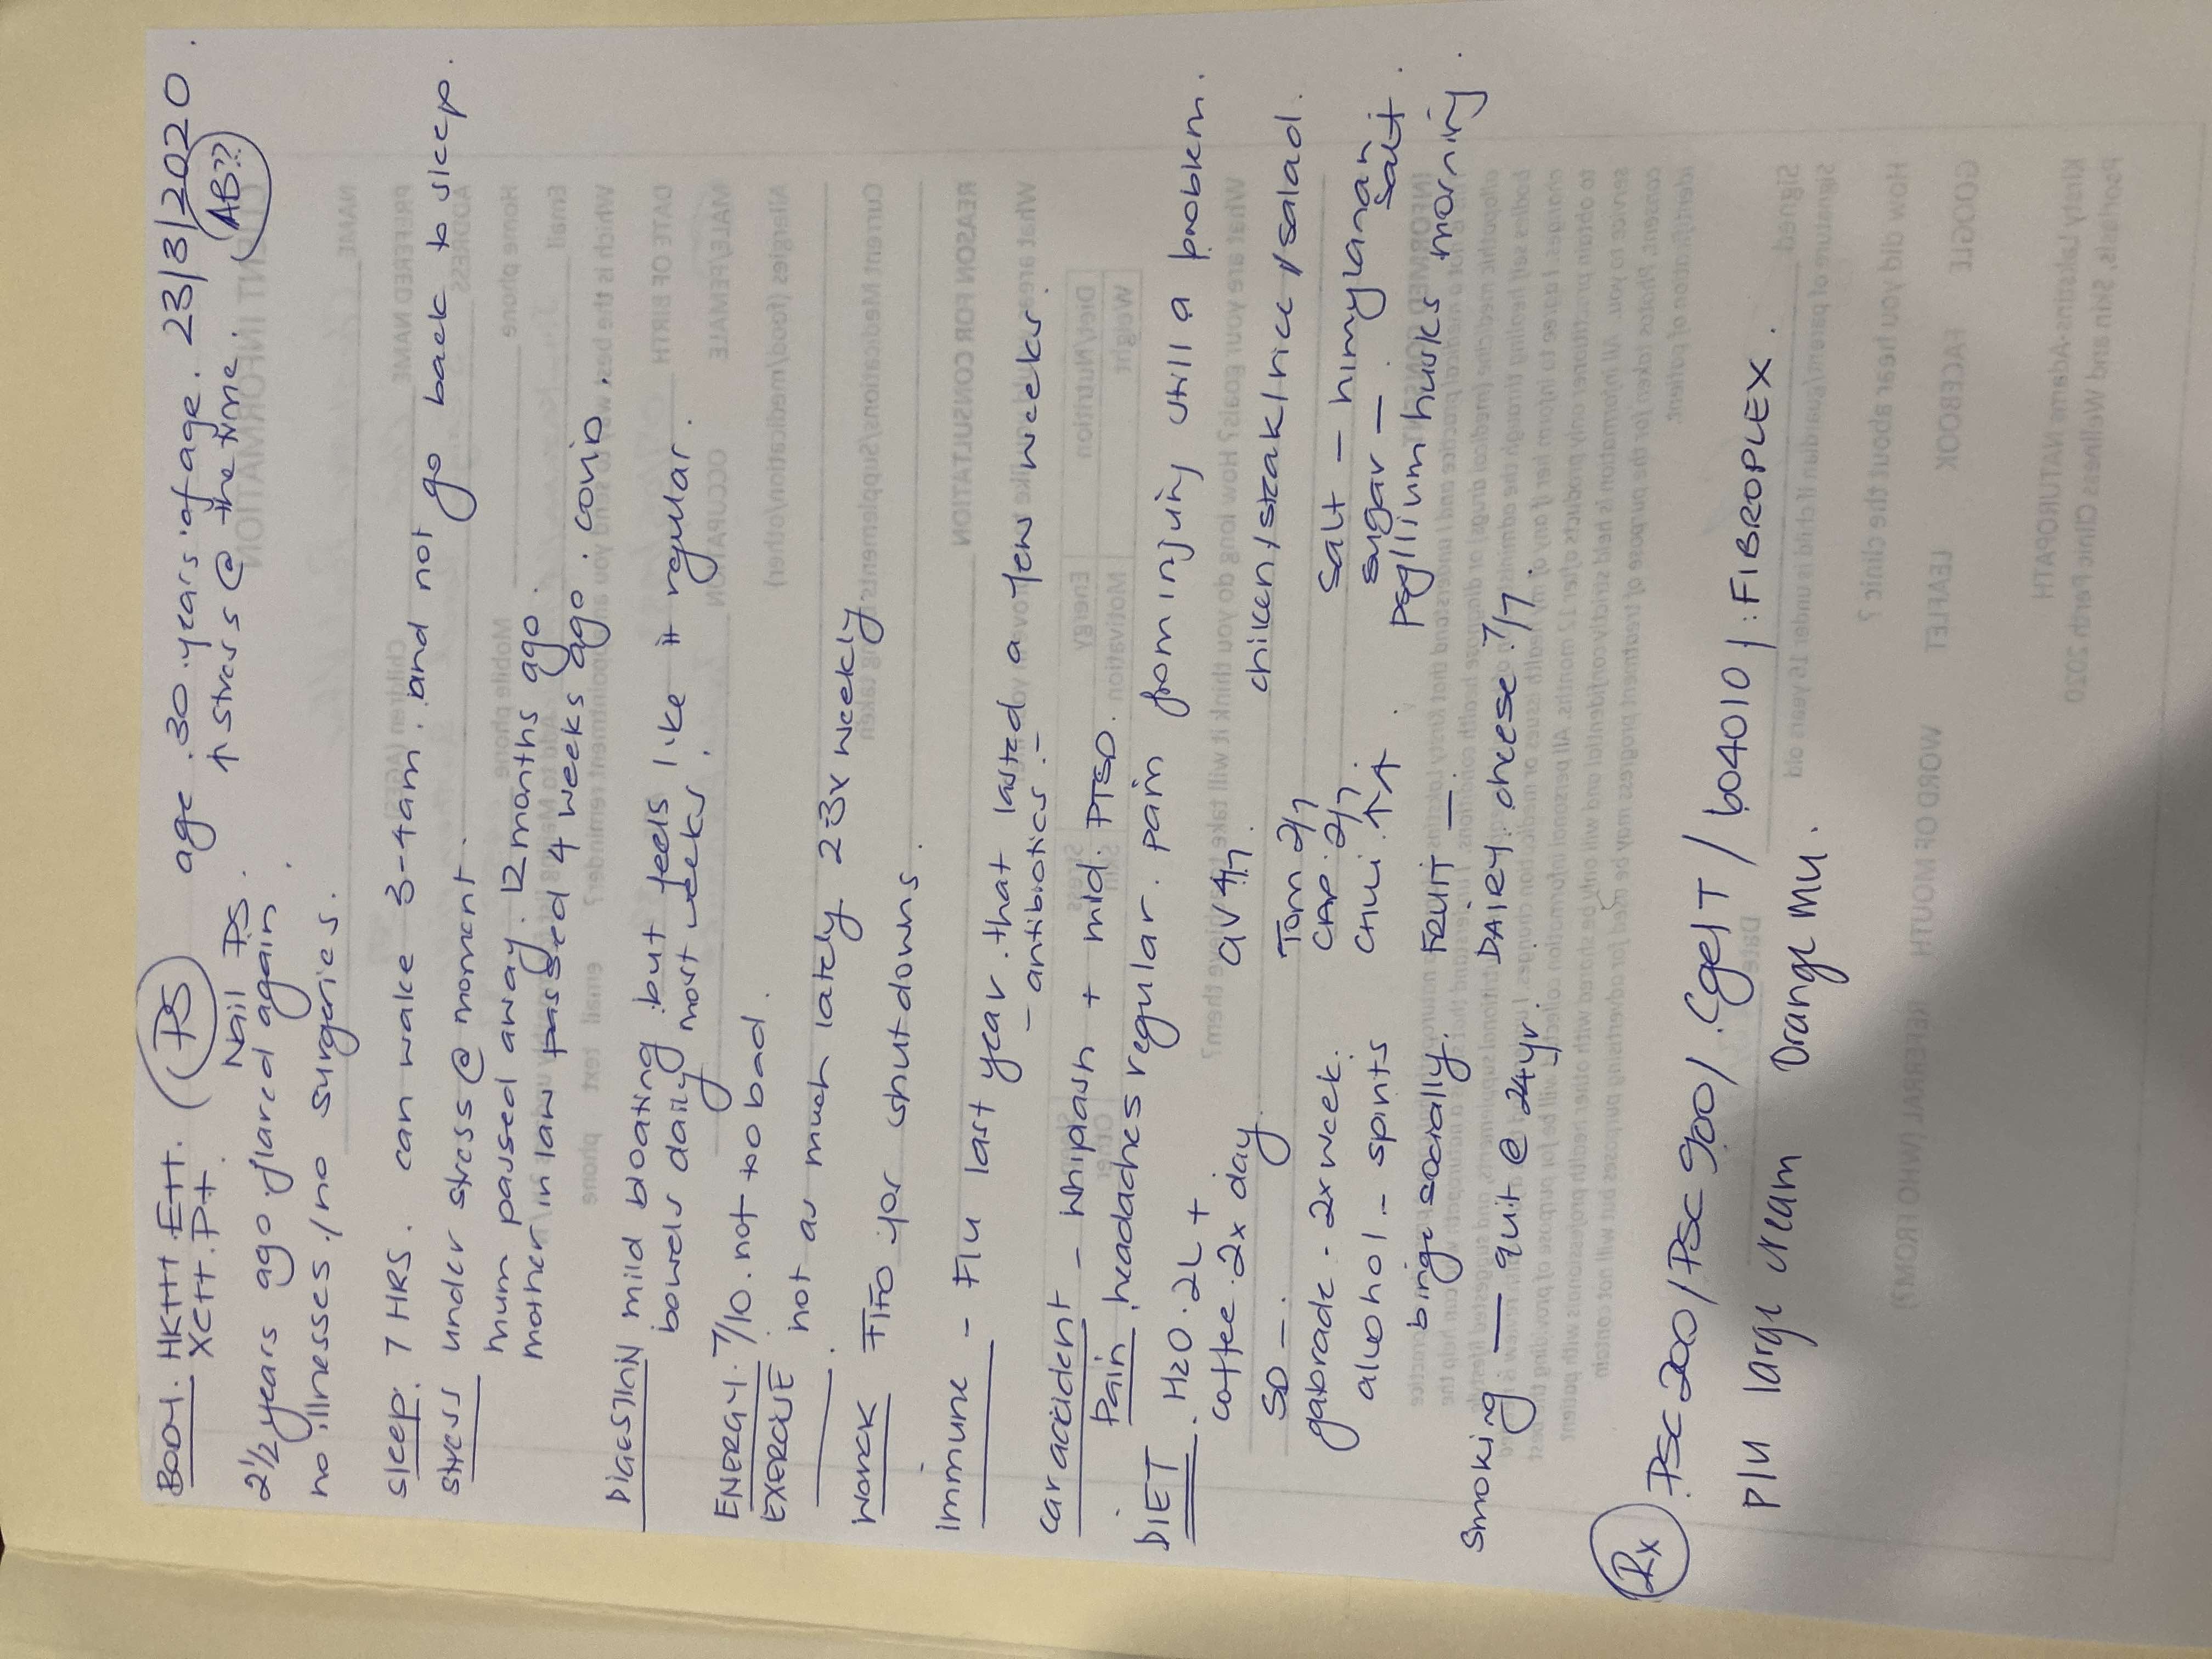 BODY. HK+++ E++. (PS) age .30.years of age. 23/3/2020.
XC++. P+. Nail PS. ↑ stress @ the time. (AB??)
2½ years ago flared again
no illnesses / no surgeries.
sleep. 7 HRS. can wake 3-4am. and not go back to sleep.
stress under stress @ moment.
mum passed away. 12 months ago.
mother in law passed 4 weeks ago. covid.
DIGESTION mild bloating but feels like it regular.
bowels daily most weeks.
ENERGY. 7/10. not too bad.
EXERCISE not as much lately 2-3x weekly
WORK FIFO for shutdowns.
immune - Flu last year. that lasted a few weeks.
- antibiotics -
car accident - whiplash + mild. PTSD.
Pain. headaches regular. pain from injury still a problem.
DIET. H2O. 2L + GV 4/7. chicken/steak/rice/salad.
coffee. 2x day
SD -. Tom 2/7 salt - himylanan salt.
gatorade - 2x week. CAP. 2/7. sugar -
alcohol - spirits CHILLI. ↑A. Psyllium husks morning.
binge socially. FRUIT -.
smoking — quit @ 24yr. DAIRY. cheese 7/7.
Rx PSC 200/PSC 900/. Cgel T / 604010 /: FIBROPLEX.
PIU large cream Orange Mu.